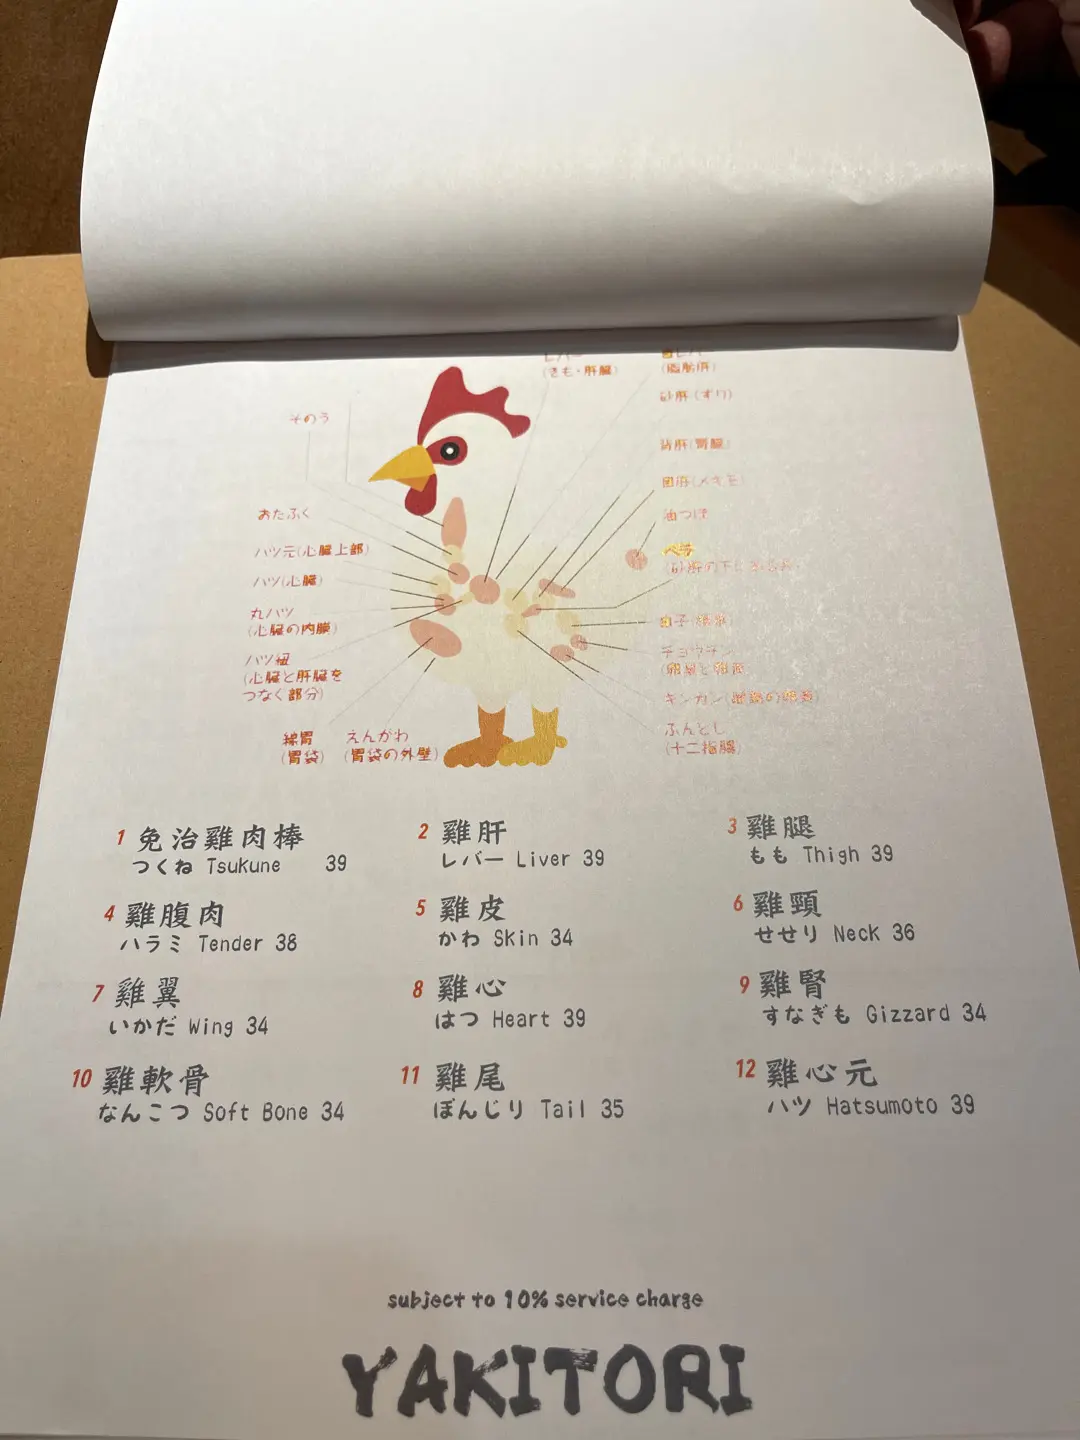 レバー
(きも・肝臓)
(脂肪肝)
砂肝(ずり)
そのう
背肝(腎臓)
おたふく
油つぼ
ハツ元(心臓上部)
ハツ(心臓)
丸ハツ
(心臓の内臓)
ハツ紐
(心臓と肝臓を
つなぐ部分)
チョウチン
キンカン
ふんどし
(十二指腸)
綠胃
(胃袋)
えんがわ
(胃袋の外壁)
1 免治雞肉棒
つくね Tsukune 39
2 雞肝
レバー Liver 39
3 雞腿
もも Thigh 39
4 雞腹肉
ハラミ Tender 38
5 雞皮
かわ Skin 34
6 雞頸
せせり Neck 36
7 雞翼
いかだ Wing 34
8 雞心
はつ Heart 39
9 雞腎
すなぎも Gizzard 34
10 雞軟骨
なんこつ Soft Bone 34
11 雞尾
ぼんじり Tail 35
12 雞心元
ハツ Hatsumoto 39
subject to 10% service charge
YAKITORI